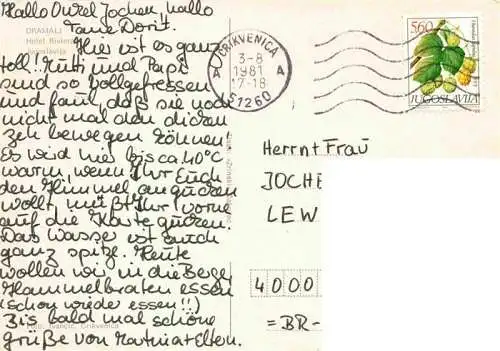 Hallo Onkel Jochen, hallo
Tante Dorit.
Hier ist es ganz
toll! Mutti und Papi
sind so vollgefressen
und faul, daß sie noch
nicht mal den dicken
Zeh bewegen können.
Es wird hier bis ca. 40°C
warm, wenn Ihr Euch
den Himmel angucken
wollt, müßt Ihr vorne
auf die Karte gucken.
Das Wasser ist auch
ganz spitze. Heute
wollen wir in die Berge
Hammelbraten essen
(schon wieder essen!!)
Bis bald mal schöne
grüße von Eltern.
DRAMALJ
Hotel Riviera
Jugoslavija
CRIKVENICA
A A
3-8
1981
17-18
51260
5.60
JUGOSLAVIJA
Herrn+Frau
JOCHE
LEW
4000
=BR-
Crikvenica